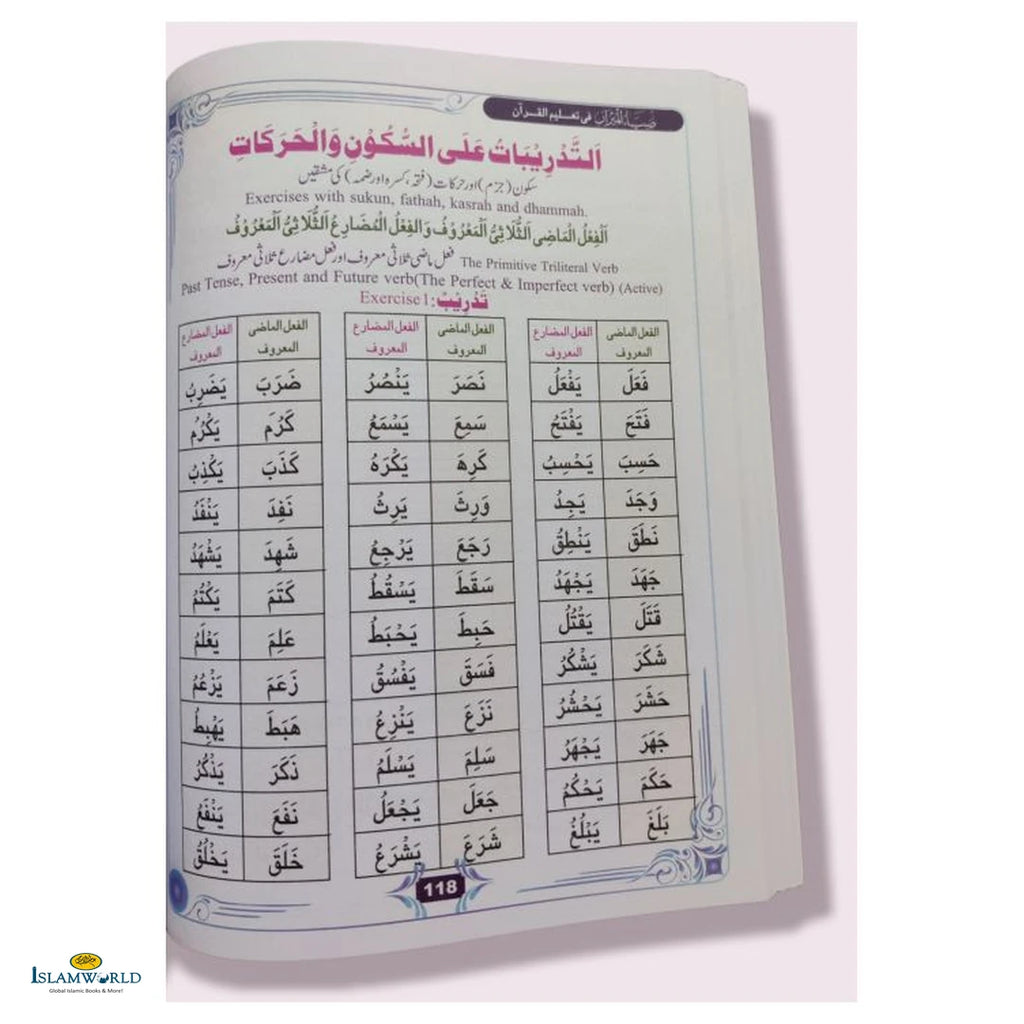 ضیاء القرآن فی تعلیم القرآن
اَلتَّدْرِيْبَاتُ عَلَى السُّكُوْنِ وَالْحَرَكَاتِ
سکون (جزم) اور حرکات (فتحہ، کسرہ اور ضمہ) کی مشقیں
Exercises with sukun, fathah, kasrah and dhammah.
اَلْفِعْلُ الْمَاضِى اَلثُّلَاثِىُّ اَلْمَعْرُوْفُ وَالْفِعْلُ الْمُضَارِعُ اَلثُّلَاثِىُّ اَلْمَعْرُوْفُ
فعل ماضی ثلاثی معروف اور فعل مضارع ثلاثی معروف The Primitive Triliteral Verb
Past Tense, Present and Future verb(The Perfect & Imperfect verb) (Active)
تَدْرِيْبٌ: Exercise1
الفعل الماضى المعروف الفعل المضارع المعروف الفعل الماضى المعروف الفعل المضارع المعروف الفعل الماضى المعروف الفعل المضارع المعروف
فَعَلَ يَفْعَلُ نَصَرَ يَنْصُرُ ضَرَبَ يَضْرِبُ
فَتَحَ يَفْتَحُ سَمِعَ يَسْمَعُ كَرُمَ يَكْرُمُ
حَسِبَ يَحْسِبُ كَرِهَ يَكْرَهُ كَذَبَ يَكْذِبُ
وَجَدَ يَجِدُ وَرِثَ يَرِثُ نَفِدَ يَنْفَدُ
نَطَقَ يَنْطِقُ رَجَعَ يَرْجِعُ شَهِدَ يَشْهَدُ
جَهَدَ يَجْهَدُ سَقَطَ يَسْقُطُ كَتَمَ يَكْتُمُ
قَتَلَ يَقْتُلُ حَبِطَ يَحْبَطُ عَلِمَ يَعْلَمُ
شَكَرَ يَشْكُرُ فَسَقَ يَفْسُقُ زَعَمَ يَزْعُمُ
حَشَرَ يَحْشُرُ نَزَعَ يَنْزِعُ هَبَطَ يَهْبِطُ
جَهَرَ يَجْهَرُ سَلِمَ يَسْلَمُ ذَكَرَ يَذْكُرُ
حَكَمَ يَحْكُمُ جَعَلَ يَجْعَلُ نَفَعَ يَنْفَعُ
بَلَغَ يَبْلُغُ شَرَعَ يَشْرَعُ خَلَقَ يَخْلُقُ
118
ISLAMWORLD
Global Islamic Books & More!